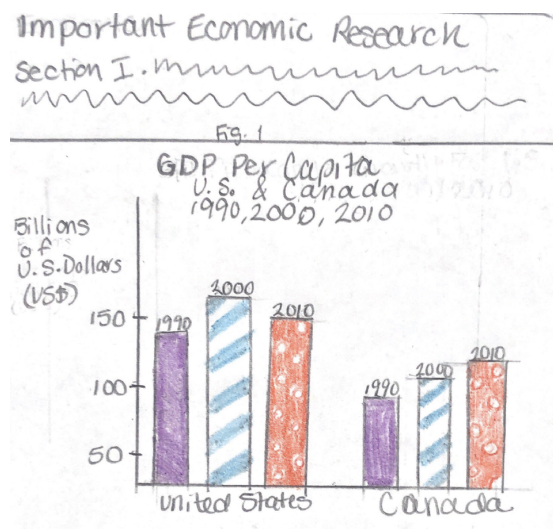 Important Economic Research
Section I.
Fig. 1
GDP Per Capita
U.S. & Canada
1990, 2000, 2010
Billions
of
U.S. Dollars
(US$)
150
100
50
1990
2000
2010
1990
2000
2010
United States
Canada